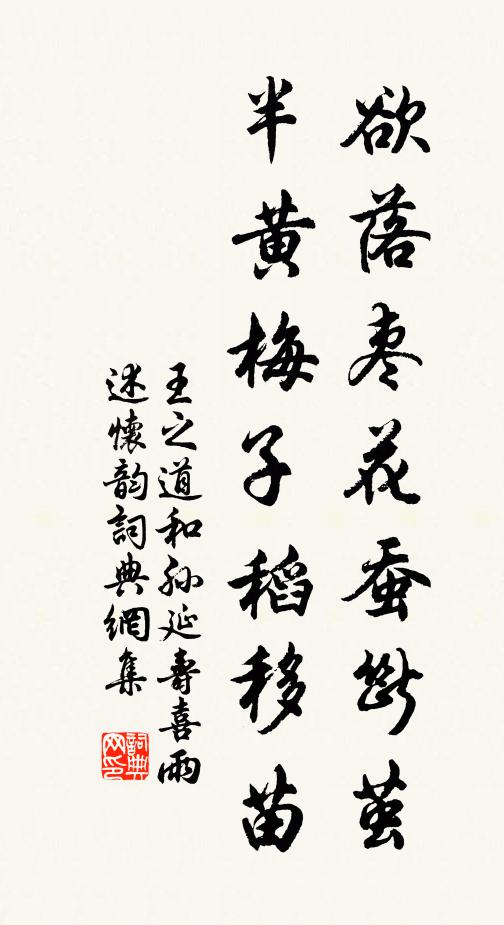 欲落枣花蚕断茧
半黄梅子稻移苗
王之道和孙延寿喜雨
述懷韵詞典網集
詞典
网印